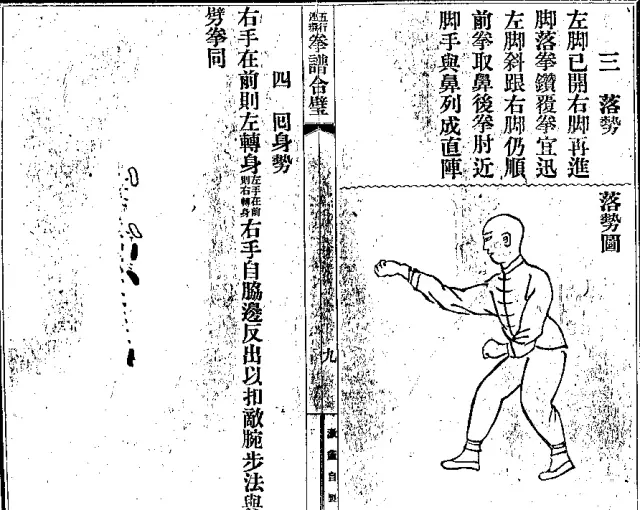 三　落勢
左脚已開右脚再進
脚落拳鑽覆拳宜迅
左脚斜跟右脚仍順
前拳取鼻後拳肘近
脚手與鼻列成直陣
落勢圖
五行連環拳譜合璧
九
四　囘身勢
右手在前則左轉身左手在前則右轉身右手自脇邊反出以扣敵腕步法與
劈拳同